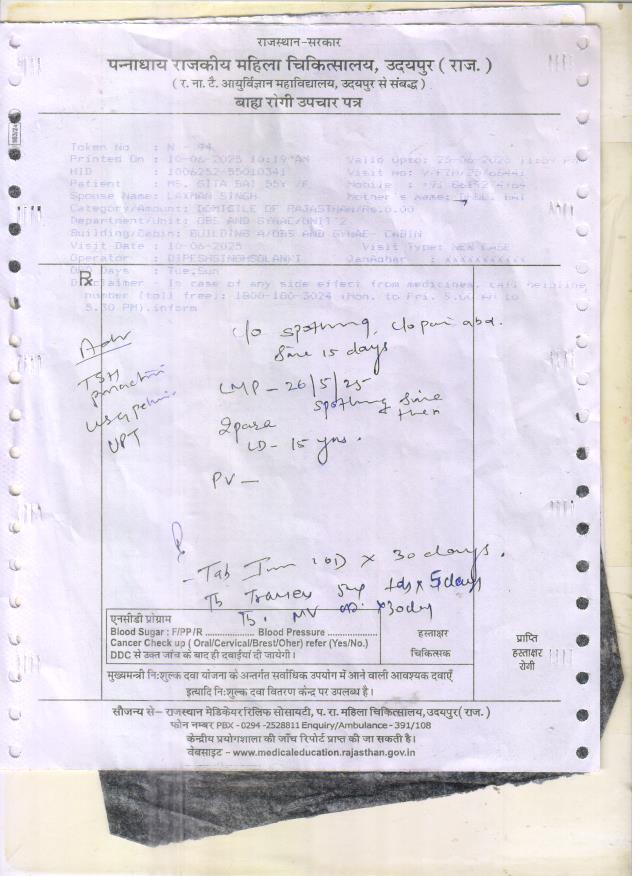 राजस्थान-सरकार
पन्नाधाय राजकीय महिला चिकित्सालय, उदयपुर ( राज. )
( र. ना. टै. आयुर्विज्ञान महाविद्यालय, उदयपुर से संबद्ध )
बाह्य रोगी उपचार पत्र
Token No : N - 94
Printed On : 10-06-2025 10:19 AM Valid Upto:
HID : Visit No:
Patient : MS. GITA BAI 55Y /F Mobile :
Spouse Name: LAXMAN SINGH Mother's Name:
Category/Amount: DOMICILE OF RAJASTHAN/Rs.0.00
Department/Unit: OBS AND GYNAE/UNIT-2
Building/Cabin: BUILDING A/OBS AND GYNAE- CABIN
Visit Date : 10-06-2025 Visit Type: NEW CASE
Operator : DIPESHSINGHSOLANKI JanAadhar :
Days : Tue,Sun
Disclaimer - In case of any side effect from medicines, call helpline
number (toll free): 1800-180- (Mon. to Fri. to
5.30 PM).inform
Rx
Adv
c/o spotting, c/o pain abd.
since 15 days
TSH
LMP - 26/5/25
spotting since then
USG pelvis
UPT
2 para
LD - 15 yrs.
PV -
- Tab OD x 30 days.
Tb Tranex tds x 5 days
Tb. MV x 30 day
एनसीडी प्रोग्राम
Blood Sugar : F/PP/R .................... Blood Pressure ..................
Cancer Check up ( Oral/Cervical/Brest/Oher) refer (Yes/No.)
DDC से उक्त जाँच के बाद ही दवाईयां दी जायेगी।
हस्ताक्षर
चिकित्सक
प्राप्ति
हस्ताक्षर
रोगी
मुख्यमन्त्री नि:शुल्क दवा योजना के अन्तर्गत सर्वाधिक उपयोग में आने वाली आवश्यक दवाएँ
इत्यादि नि:शुल्क दवा वितरण केन्द्र पर उपलब्ध है।
सौजन्य से– राजस्थान मेडिकेयर रिलिफ सोसायटी, प. रा. महिला चिकित्सालय, उदयपुर( राज. )
फोन नम्बर PBX - 0294 -2528811 Enquiry/Ambulance - 391/108
केन्द्रीय प्रयोगशाला की जाँच रिपोर्ट प्राप्त की जा सकती है।
वेबसाइट - www.medicaleducation.rajasthan.gov.in